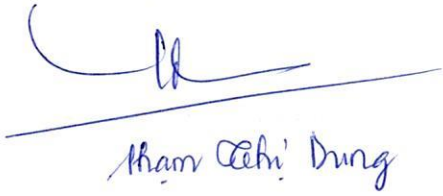 Phạm Thị Dung